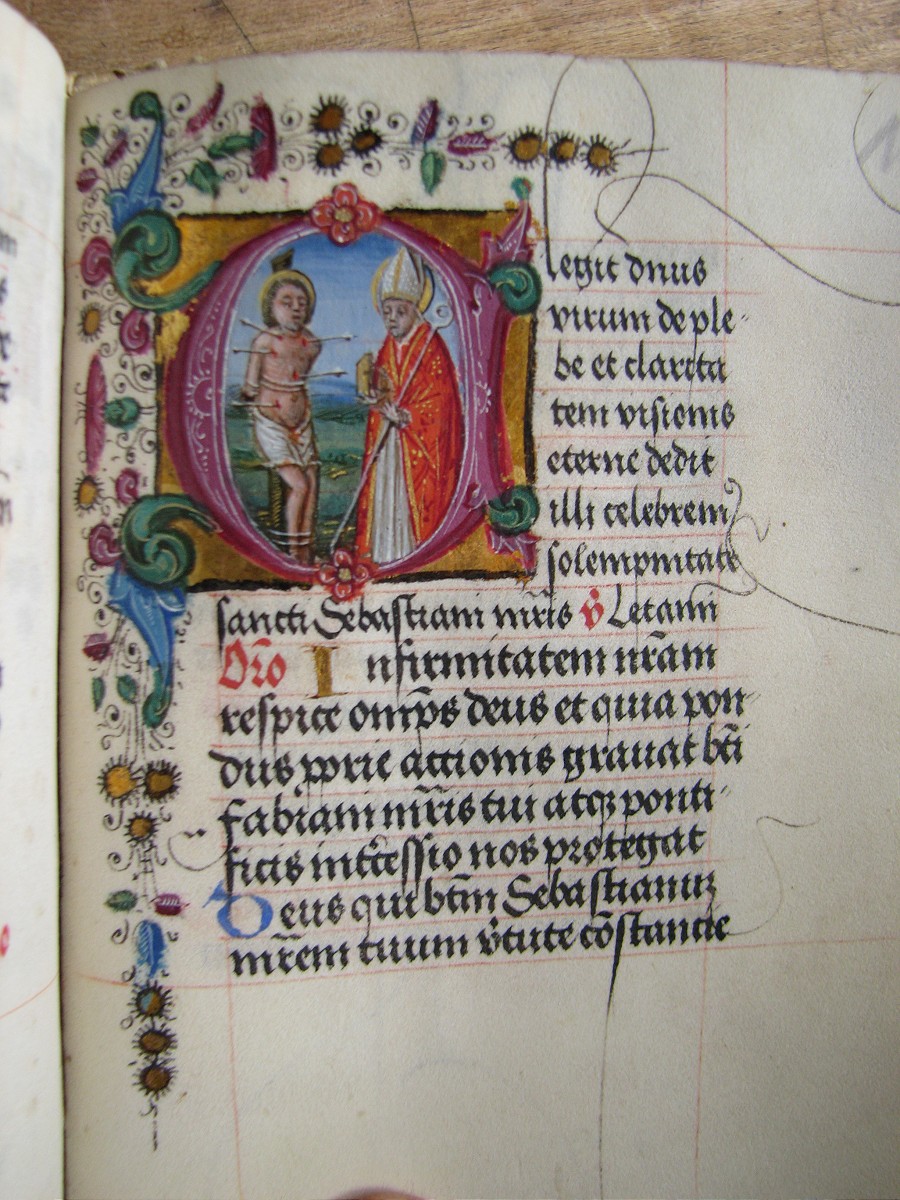 Elegit dnus
virum de ple-
be et clarita
tem visionis
eterne dedit
illi celebrem
solempnitate
sancti Sebastiani mr̄is v̄ Letami
Or̄o Infirmitatem nr̄am
respice omp̄s deus et quia pon-
dus ꝓprie actionis gravat bt̄i
Fabiani mr̄is tui atqꝫ ponti-
ficis intc̄essio nos protegat
Deus qui bt̄m Sebastianuꝫ
mr̄em tuum v̄tute cōstancie